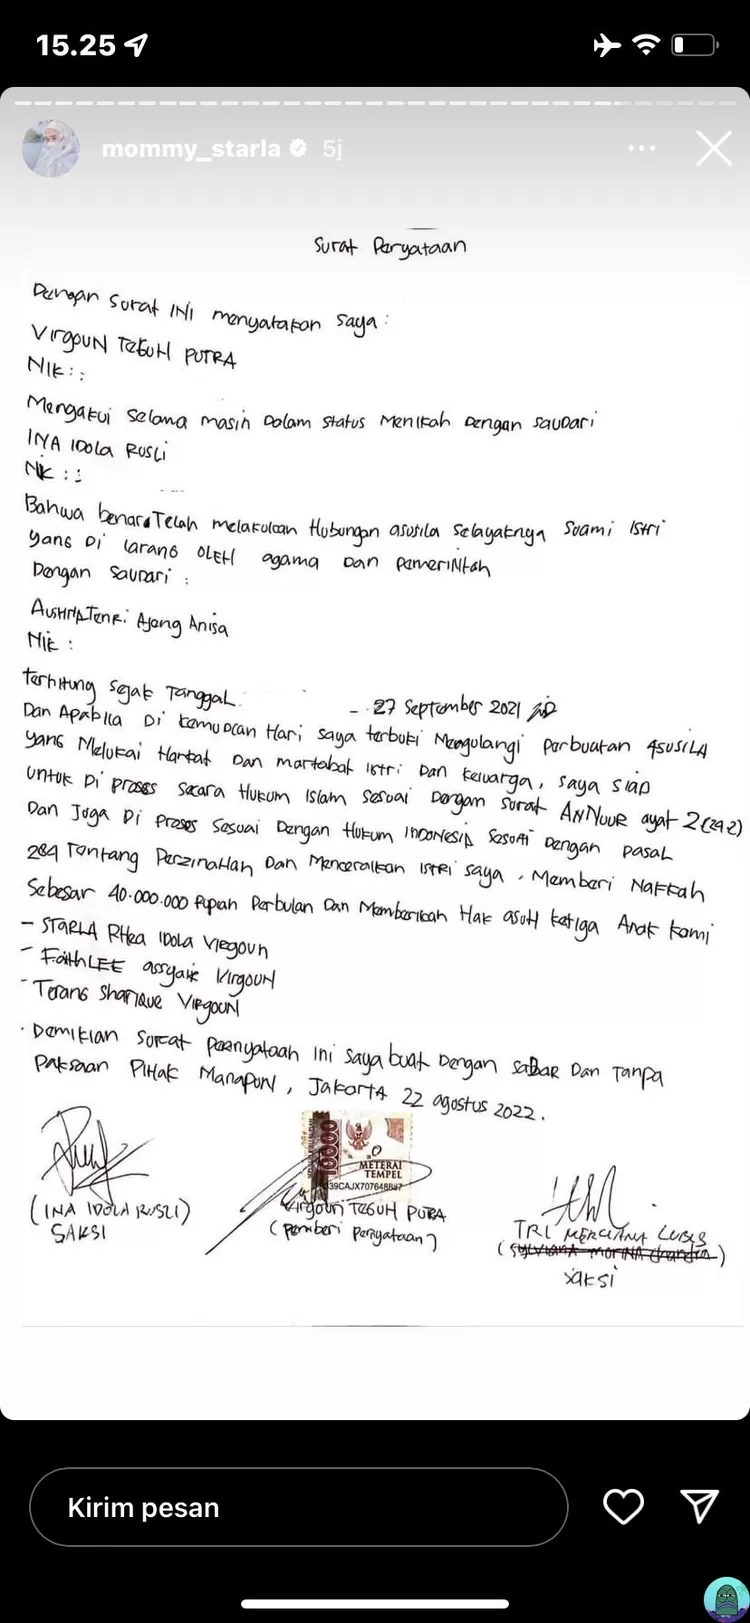 15.25
mommy_starla 5j
Surat Peryataan
Dengan Surat INI menyatakan saya :
VIRGOUN TEGUH PUTRA
NIK : :
Mengakui Selama masih Dalam status Menikah Dengan saudari
INA IDOLA RUSLI
NIK : :
Bahwa benar Telah melakukan Hubungan asusila Selayaknya Suami istri
yang Di larang OLEH agama Dan Pemerintah
Dengan Saudari :
Ajeng Anisa
NIK :
terhitung Sejak Tanggal - 27 September 2021
Dan Apabila Di kemudian Hari saya terbukti Mengulangi perbuatan ASUSILA
yang Melukai Harkat Dan martabat istri Dan keluarga, saya siap
untuk Di proses secara Hukum Islam Sesuai Dengan surat ANNUUR ayat 2 (24:2)
Dan Juga Di proses Sesuai Dengan Hukum INDONESIA Sesuai dengan pasal
284 Tentang Perzinahan Dan Menceraikan istri saya, Memberi Nafkah
Sebesar 40.000.000 Rupiah Perbulan Dan Memberikan Hak asuh ketiga Anak kami
- STARLA RHea IDOLA VIRGOUN
- FaithLEE assyaik VIRGOUN
- Terang Sharique VIRGOUN
. Demikian Surat Pernyataan Ini Saya buat Dengan saBar Dan Tanpa
Paksaan Pihak Manapun, Jakarta 22 agustus 2022.
10000
METERAI
TEMPEL
39CAJX707648887
(INA IDOLA RUSLI)
SAKSI
Virgoun TEGUH PUTRA
(pemberi peryataan)
TRI MERCIANA LUBIS
SAKSI
Kirim pesan